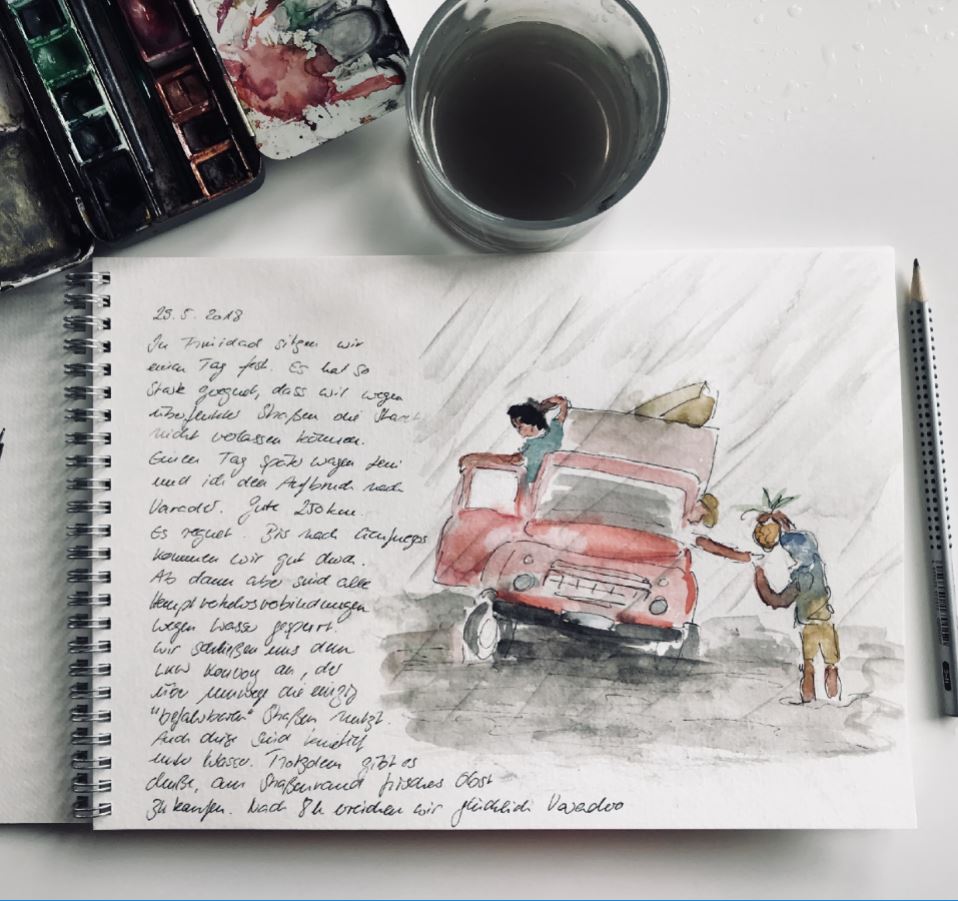 29.5.2018
In Trinidad sitzen wir
einen Tag fest. Es hat so
stark geregnet, dass wir wegen
überfluteter Straßen die Stadt
nicht verlassen können.
Einen Tag später wagen
und ich den Aufbruch nach
Varadero. Gute 250 km.
Es regnet. Bis nach Cienfuegos
kommen wir gut durch.
Ab dann aber sind alle
Hauptverkehrsverbindungen
wegen Wasser gesperrt.
Wir schließen uns dem
LKW Konvoy an, der
über Umwege die einzig
"befahrbaren" Straßen nutzt.
Auch diese sind
unter Wasser. Trotzdem gibt es
am Straßenrand frisches Obst
zu kaufen. Nach 8h erreichen wir glücklich Varadero